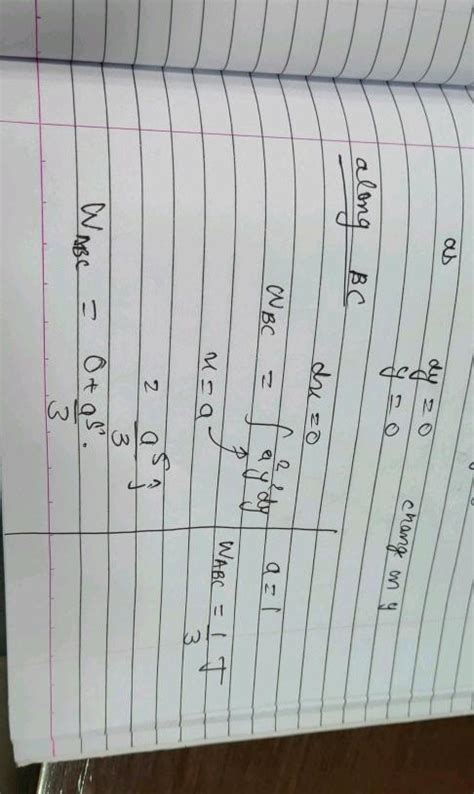 as dy = 0
y = 0 change on y
along BC
dx = 0
W_BC = ∫ a² y² dy
x = a
= a⁵/3 ĵ
W_ABC = 0 + a⁵/3 .
a = 1
W_ABC = 1/3 J